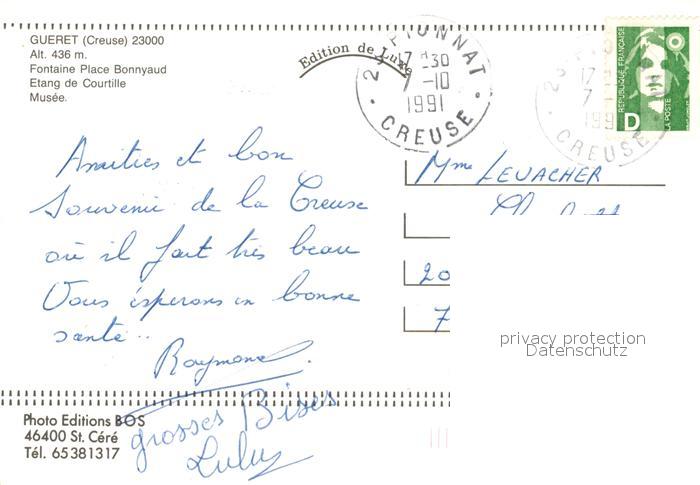 GUERET (Creuse) 23000
Alt. 436 m.
Fontaine Place Bonnyaud
Etang de Courtille
Musée.
Edition de Luxe
23 PIONNAT
17 H 30
7 -10
1991
CREUSE
REPUBLIQUE FRANÇAISE
D
LA POSTE
Amitiés et bon
Souvenir de la Creuse
où il fait très beau
Vous espérons en bonne
santé..
Raymond.
grosses Bises
Lulu
Mme LEVACHER
20
7
privacy protection
Datenschutz
Photo Editions BOS
46400 St. Céré
Tél. 65381317